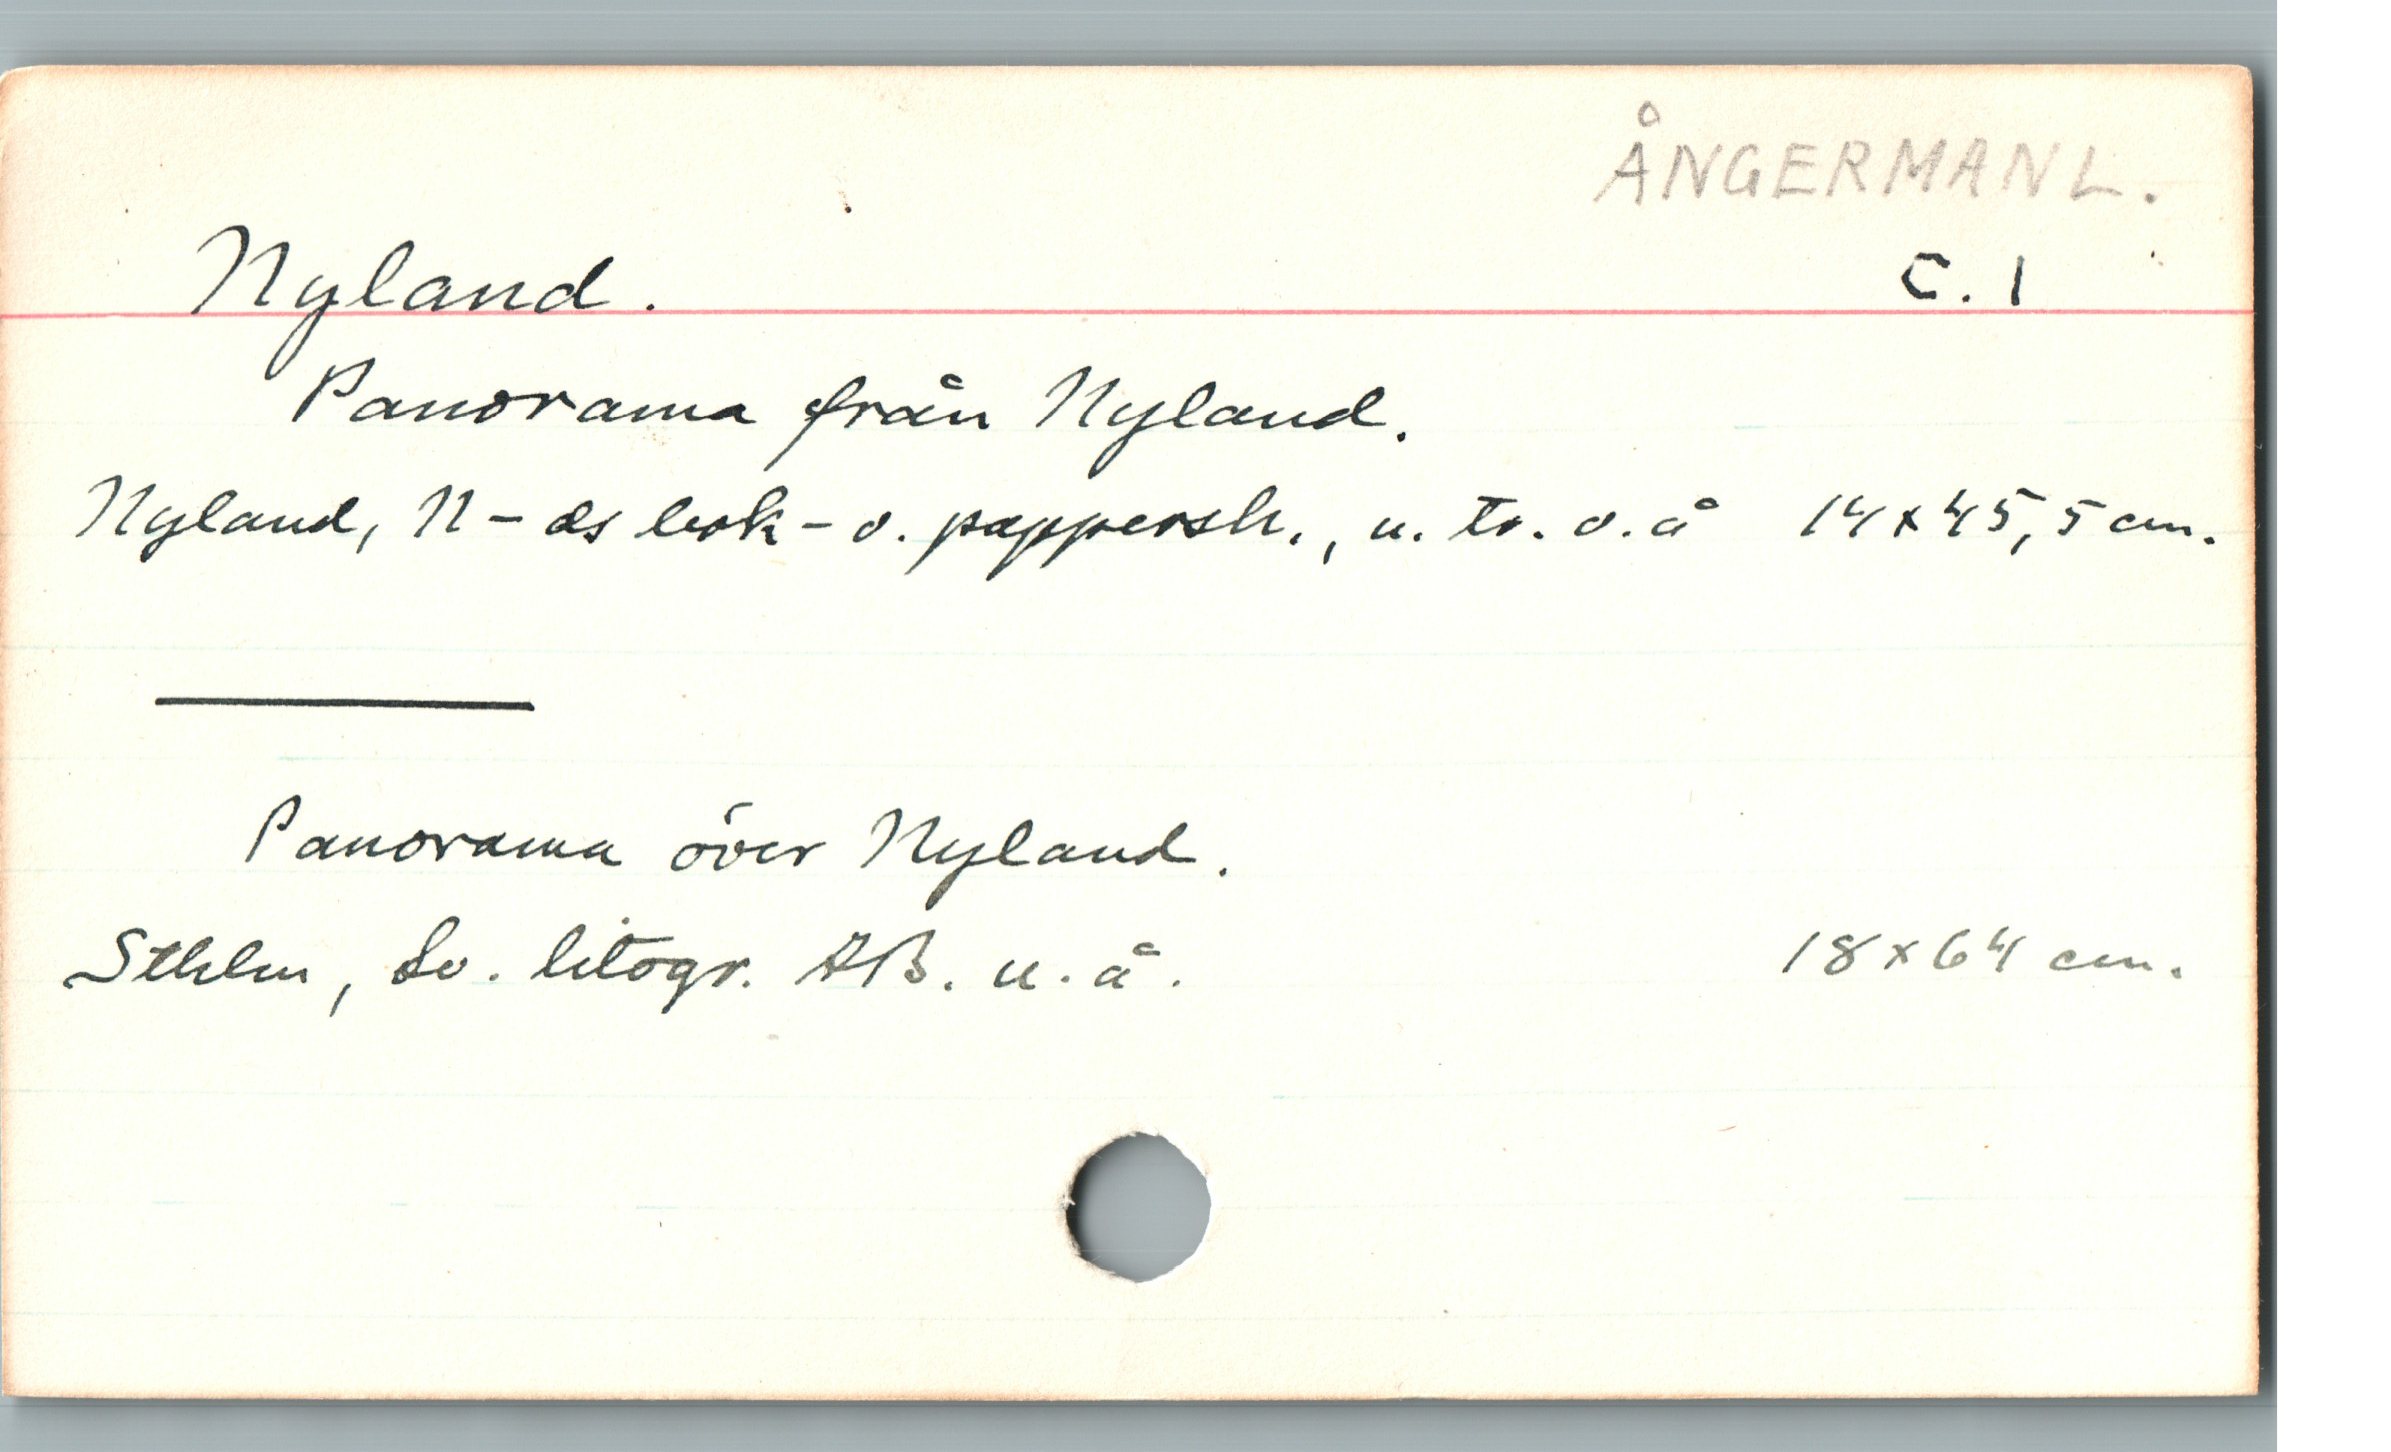 ÅNGERMANL.
Nyland. C. 1
Panorama från Nyland.
Nyland, N-ds bok- o. pappersh., u. tr. o. å 14 x 45,5 cm.
Panorama över Nyland.
Sthlm, Sv. litogr. AB. u. å. 18 x 64 cm.